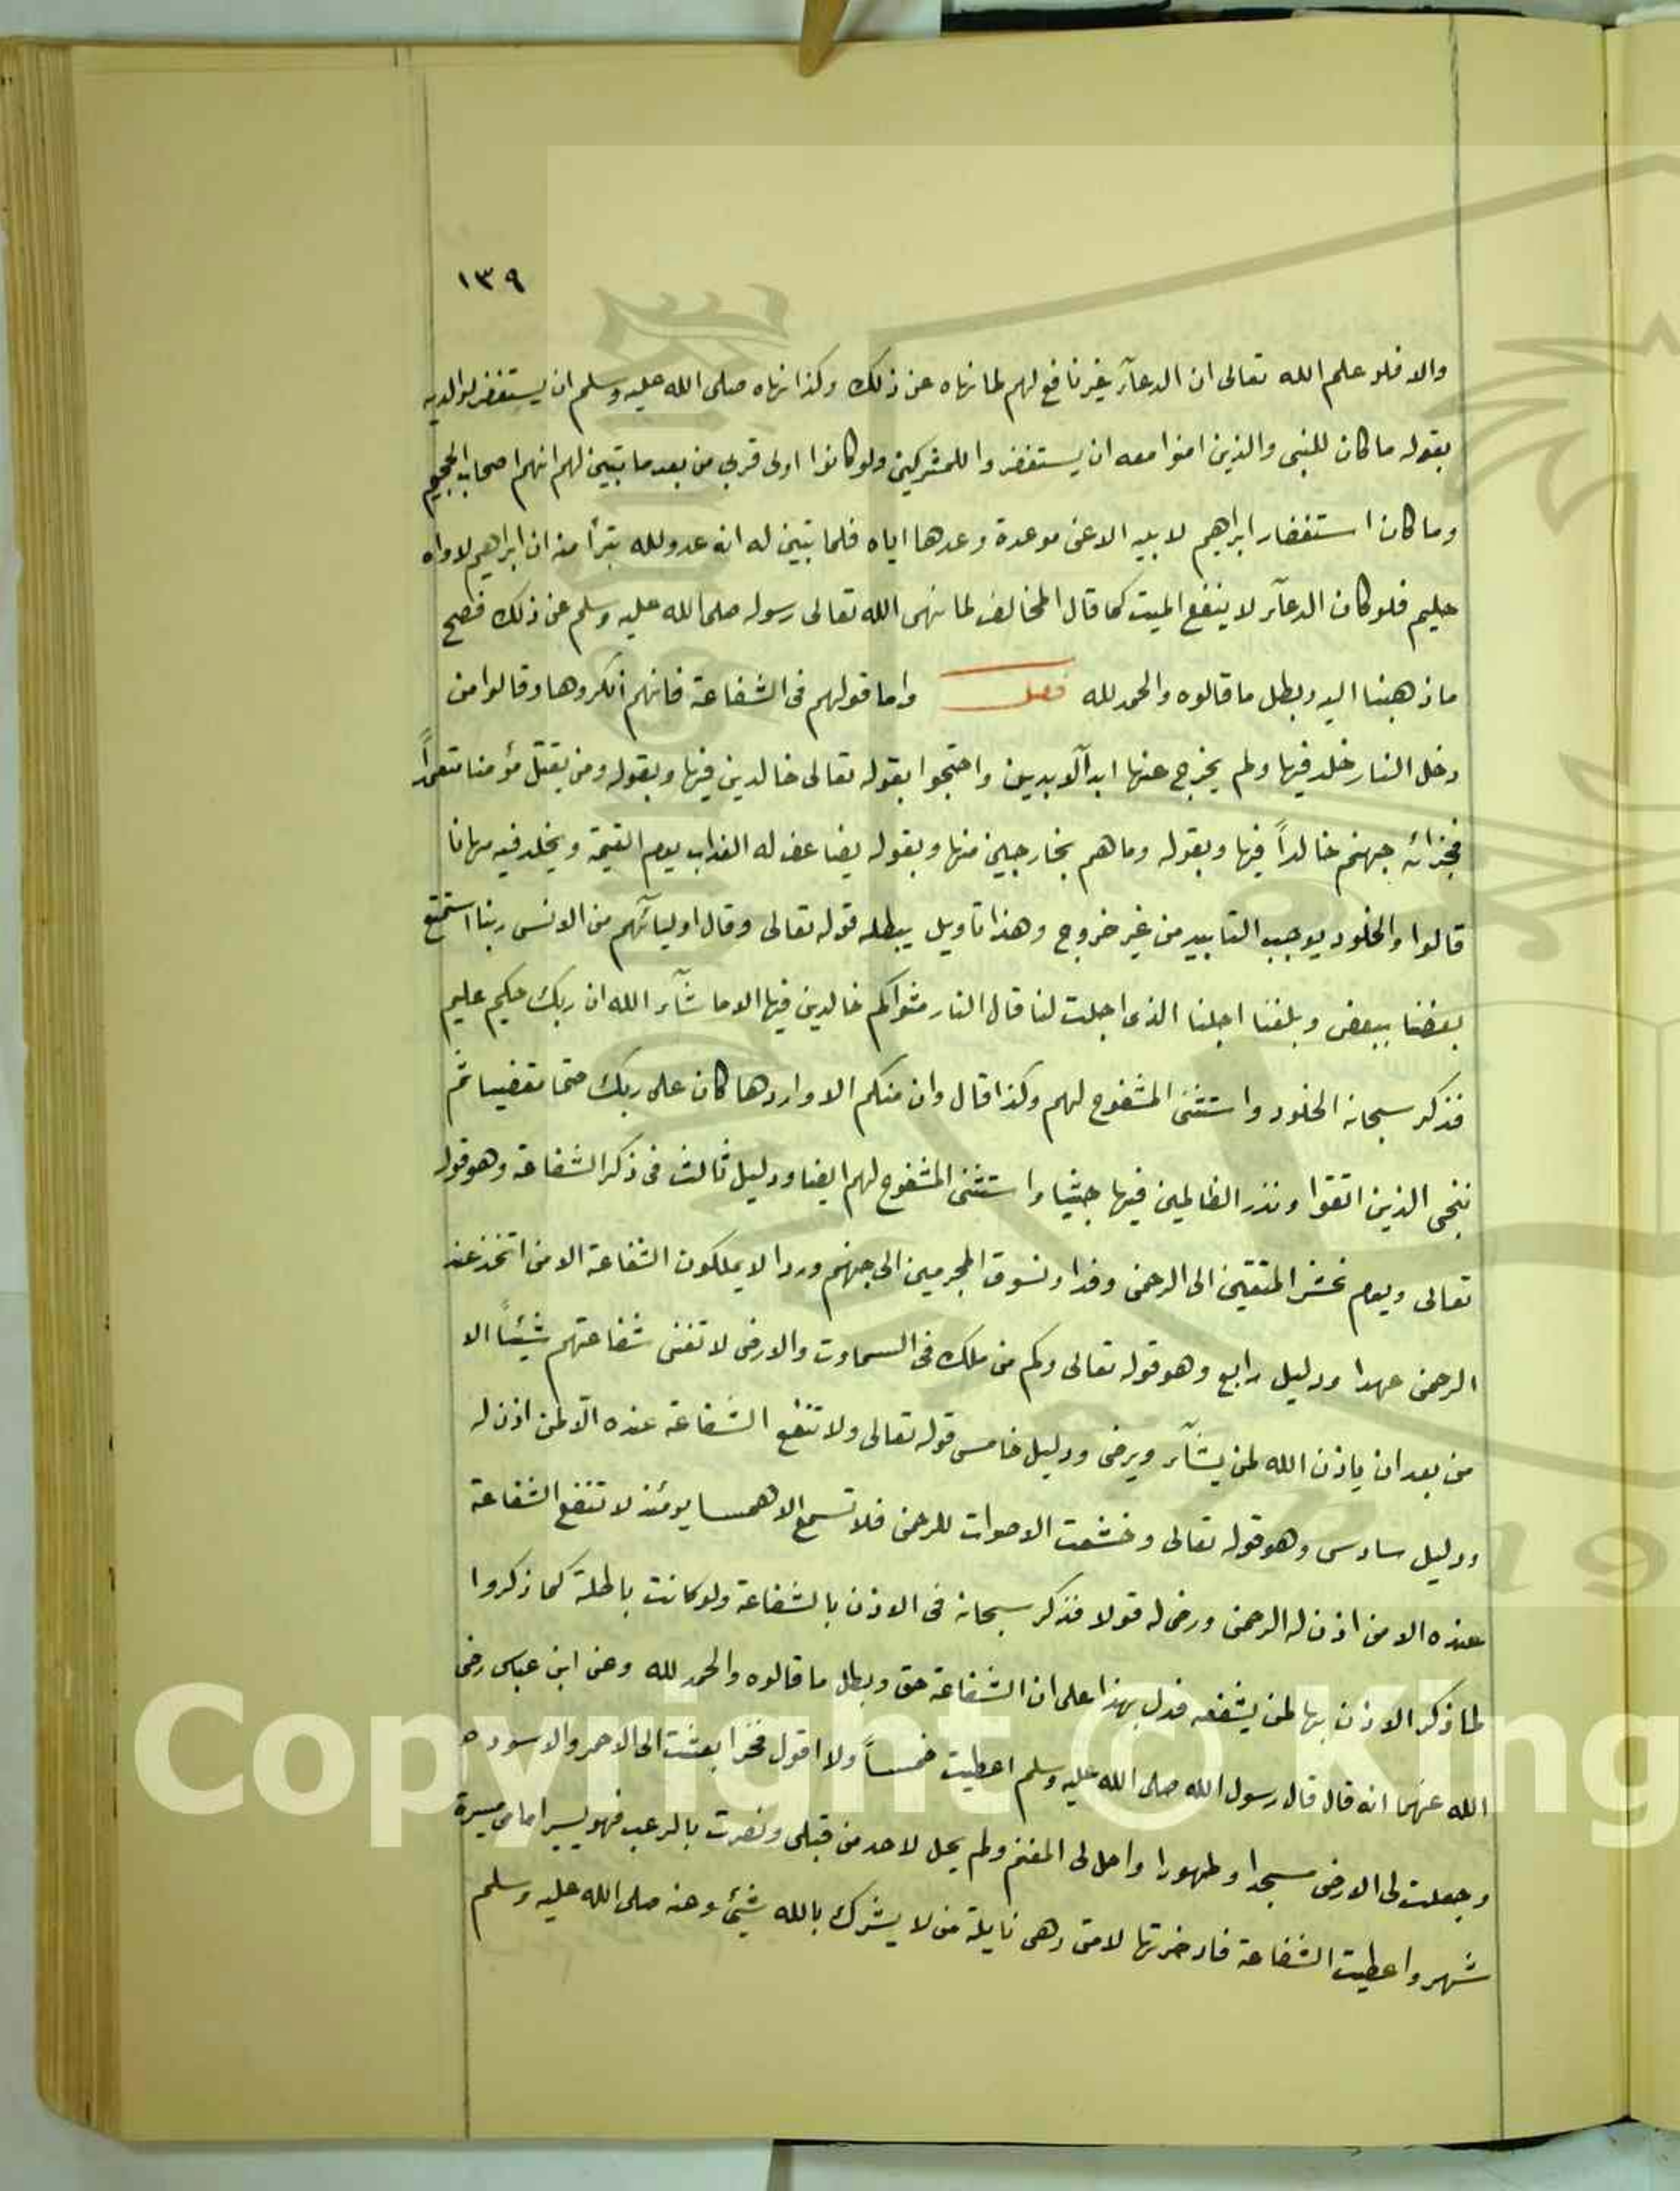 ١٣٩
والا فلو علم الله تعالى ان الدعآء غير نافع لهم لما نهاه عن ذلك وكذا نهاه صلى الله عليه وسلم ان يستغفر لوالديه
بقوله ما كان للنبى والذين امنوا معه ان يستغفروا للمشركين ولو كانوا اولى قربى من بعد ما تبين لهم انهم اصحاب الجحيم
وما كان استغفار ابراهيم لابيه الا عن موعدة وعدها اياه فلما تبين له انه عدو لله تبرأ منه ان ابراهيم لاواه
حليم فلو كان الدعآء لا ينفع الميت كما قال المخالف لما نهى الله تعالى رسوله صلى الله عليه وسلم عن ذلك فصح
ما ذهبنا اليه وبطل ما قالوه والحمد لله فصل واما قولهم فى الشفاعة فانهم انكروها وقالوا من
دخل النار خلد فيها ولم يخرج عنها ابد الآبدين واحتجوا بقوله تعالى خالدين فيها وبقوله ومن يقتل مؤمنا متعمداً
فجزائه جهنم خالداً فيها وبقوله وما هم بخارجين منها وبقوله يضاعف له العذاب يوم القيمة ويخلد فيه مهانا
قالوا والخلود يوجب التابيد من غير خروج وهذا تاويل يبطله قوله تعالى وقال اوليائهم من الانس ربنا استمتع
بعضنا ببعض وبلغنا اجلنا الذى اجلت لنا قال النار مثواكم خالدين فيها الا ما شآء الله ان ربك حكيم عليم
فذكر سبحانه الخلود واستثنى المشفوع لهم وكذا قال وان منكم الا واردها كان على ربك حتما مقضيا ثم
ننجى الذين اتقوا ونذر الظالمين فيها جثيا واستثنى المشفوع لهم ايضا ودليل ثالث فى ذكر الشفاعة وهو قوله
تعالى ويوم نحشر المتقين الى الرحمن وفدا ونسوق المجرمين الى جهنم وردا لا يملكون الشفاعة الا من اتخذ عند
الرحمن عهدا ودليل رابع وهو قوله تعالى وكم من ملك فى السموات والارض لا تغنى شفاعتهم شيئاً الا
من بعد ان ياذن الله لمن يشآء ويرضى ودليل خامس قوله تعالى ولا تنفع الشفاعة عنده الّا لمن اذن له
ودليل سادس وهو قوله تعالى وخشعت الاصوات للرحمن فلا تسمع الا همسا يومئذ لا تنفع الشفاعة
عنده الا من اذن له الرحمن ورضى له قولا فذكر سبحانه فى الاذن بالشفاعة ولو كانت باطلة كما ذكروا
لما ذكر الاذن بها لمن يشفعه فدل بهذا على ان الشفاعة حق وبطل ما قالوه والحمد لله وعن ابن عباس رضى
الله عنهما انه قال قال رسول الله صلى الله عليه وسلم اعطيت خمساً ولا اقول فخرا بعثت الى الاحمر والاسود ه
وجعلت لى الارض مسجدا وطهورا واحل لى المغنم ولم يحل لاحد من قبلى ونصرت بالرعب فهو يسير امامى مسيرة
شهر واعطيت الشفاعة فادخرتها لامتى وهى نايلة من لا يشرك بالله شئ وعنه صلى الله عليه وسلم
Copyright © King